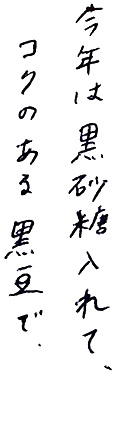 今年は黒砂糖入れて、
コクのある黒豆で.